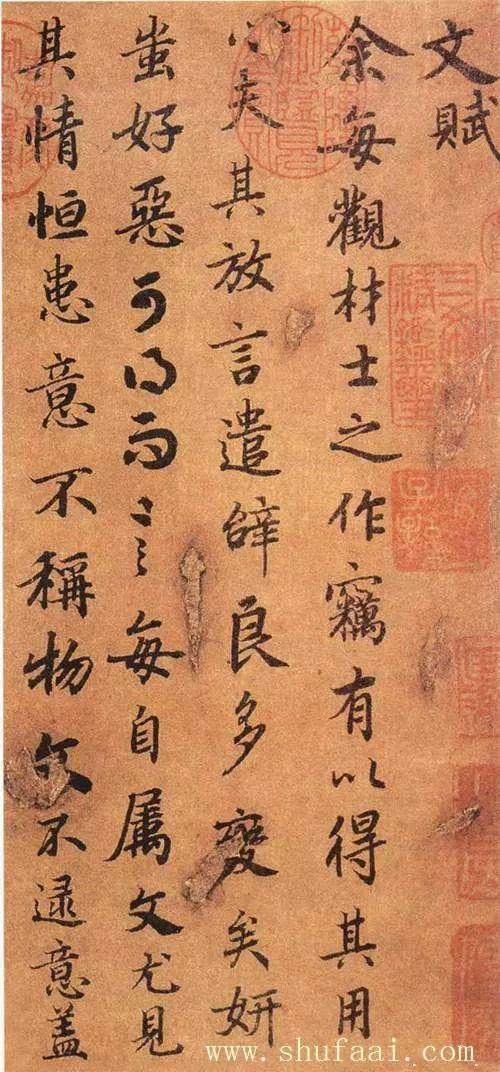 文賦
余每觀材士之作竊有以得其用
心夫其放言遣辭良多變矣妍
蚩好惡可得而言每自属文尤見
其情恒患意不稱物文不逮意盖
三希堂
精鑑璽
宜
子孫
www.shufaai.com